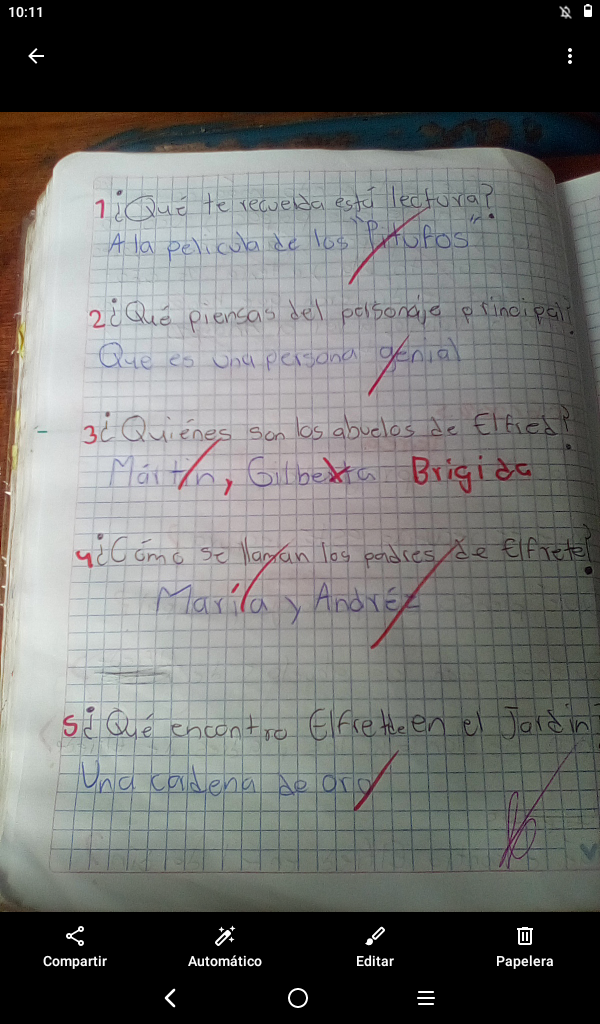 10:11
1¿Qué te recuerda está lectura?
A la pelicula de los "Pitufos"
2¿Qué piensas del personaje principal?
Que es una persona genial
3¿Quiénes son los abuelos de Elfred?
Mártin, Gilberta Brigida
4¿Cómo se llaman los padres de Elfrete?
María y Andréz
5¿Qué encontro Elfrette en el Jardin?
Una cadena de oro
Compartir
Automático
Editar
Papelera